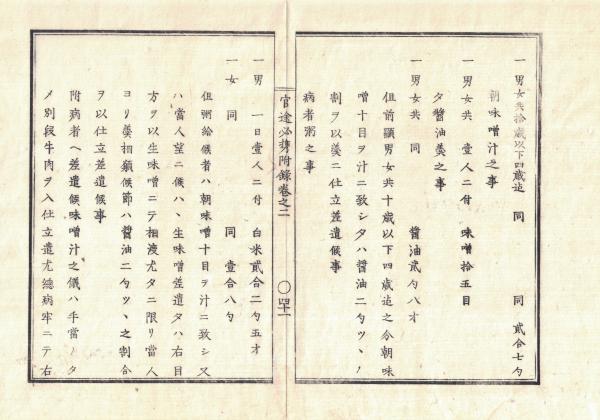 一男女共拾歳以下四歳迄　同　同　貳合七勺
朝味噌汁之事
一男女共　壹人ニ付　味噌拾五目
夕醤油羹之事
一男女共　同　醤油貳勺八才
但前顕男女共十歳以下四歳迄之分朝味
噌十目ヲ汁ニ致シタハ醤油二勺ツヽノ
割ヲ以羹ニ仕立差遣候事
病者粥之事
官途必携附録巻之二　〇四十一
一男　一日壹人ニ付　白米貳合二勺五才
一女　同　同　壹合八勺
但粥給候者ハ朝味噌十目ヲ汁ニ致シ又
ハ當人望ニ候ハヽ生味噌差遣タハ右目
方ヲ以生味噌ニテ相渡尤タニ限リ當人
ヨリ羹相願候節ハ醤油二勺ツヽ之割合
ヲ以仕立差遣候事
附病者ヘ差遣候味噌汁之儀ハ手當ノタ
メ別段牛肉ヲ入仕立遣尤總病牢ニテ右